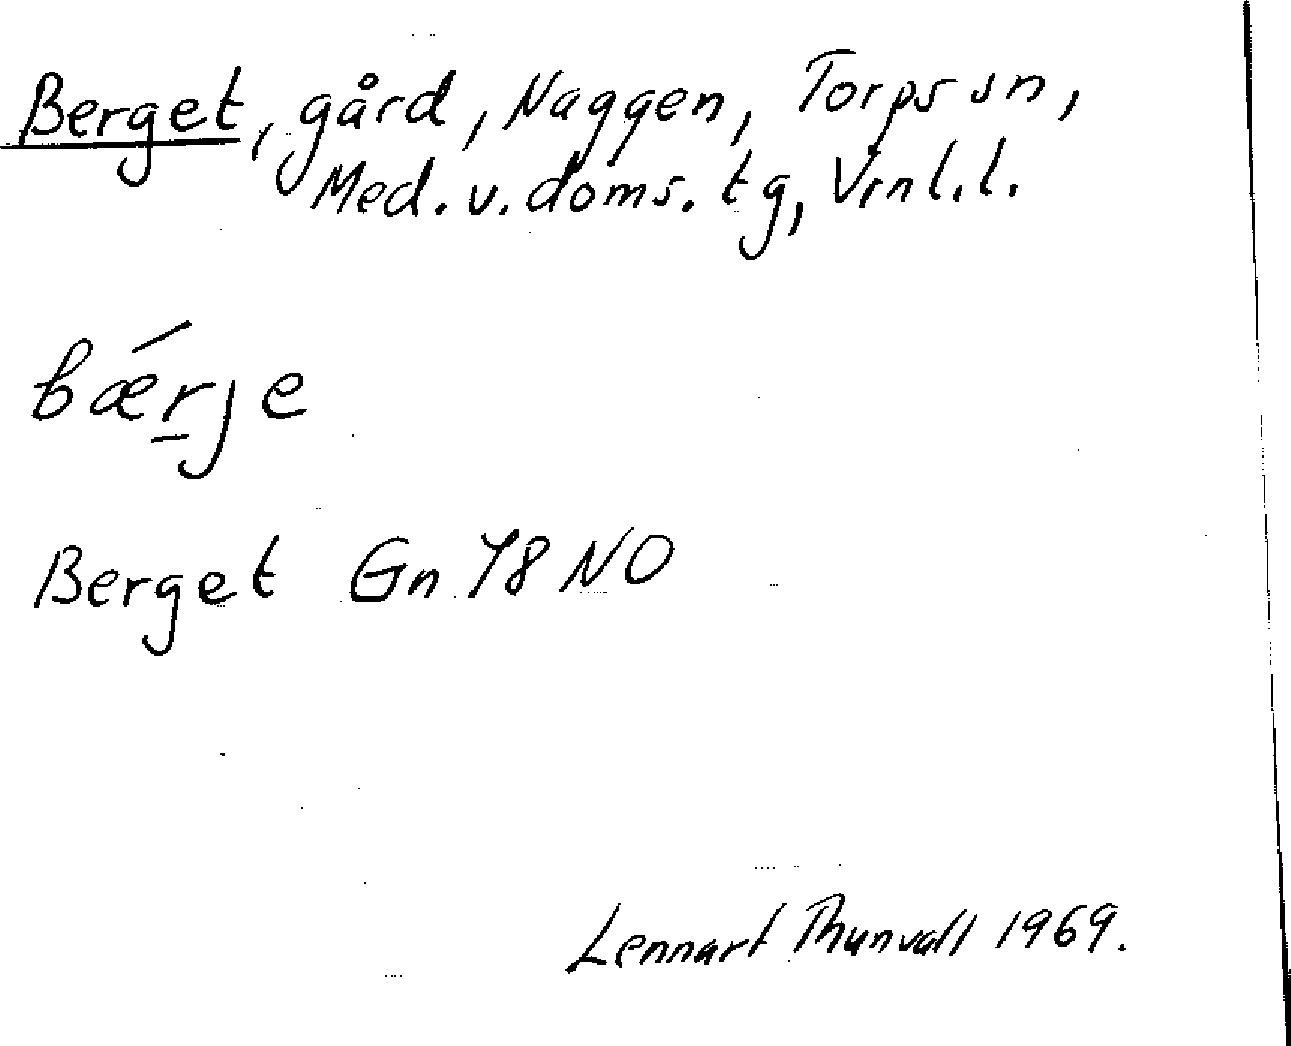 Berget, gård, Naggen, Torps sn,
Med. v. doms. tg, Vrnl. l.
bǽr̲je
Berget Gn 78 NO
Lennart Thunvall 1969.